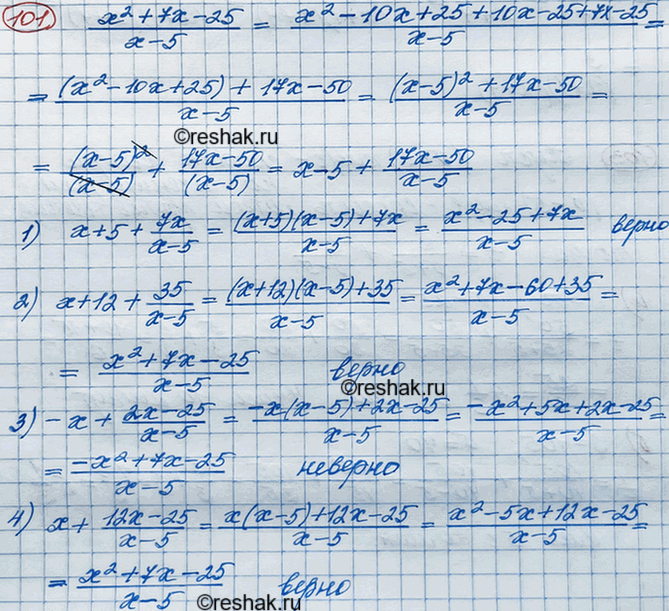 101. (x² + 7x - 25)/(x - 5) = (x² - 10x + 25 + 10x - 25 + 7x - 25)/(x - 5) =
= ((x² - 10x + 25) + 17x - 50)/(x - 5) = ((x - 5)² + 17x - 50)/(x - 5) =
©reshak.ru
= (x - 5)²/(x - 5) + (17x - 50)/(x - 5) = x - 5 + (17x - 50)/(x - 5)
1) x + 5 + 7x/(x - 5) = ((x + 5)(x - 5) + 7x)/(x - 5) = (x² - 25 + 7x)/(x - 5) верно
2) x + 12 + 35/(x - 5) = ((x + 12)(x - 5) + 35)/(x - 5) = (x² + 7x - 60 + 35)/(x - 5) =
= (x² + 7x - 25)/(x - 5) верно
©reshak.ru
3) - x + (2x - 25)/(x - 5) = (-x(x - 5) + 2x - 25)/(x - 5) = (-x² + 5x + 2x - 25)/(x - 5) =
= (-x² + 7x - 25)/(x - 5) неверно
4) x + (12x - 25)/(x - 5) = (x(x - 5) + 12x - 25)/(x - 5) = (x² - 5x + 12x - 25)/(x - 5) =
= (x² + 7x - 25)/(x - 5) верно
©reshak.ru